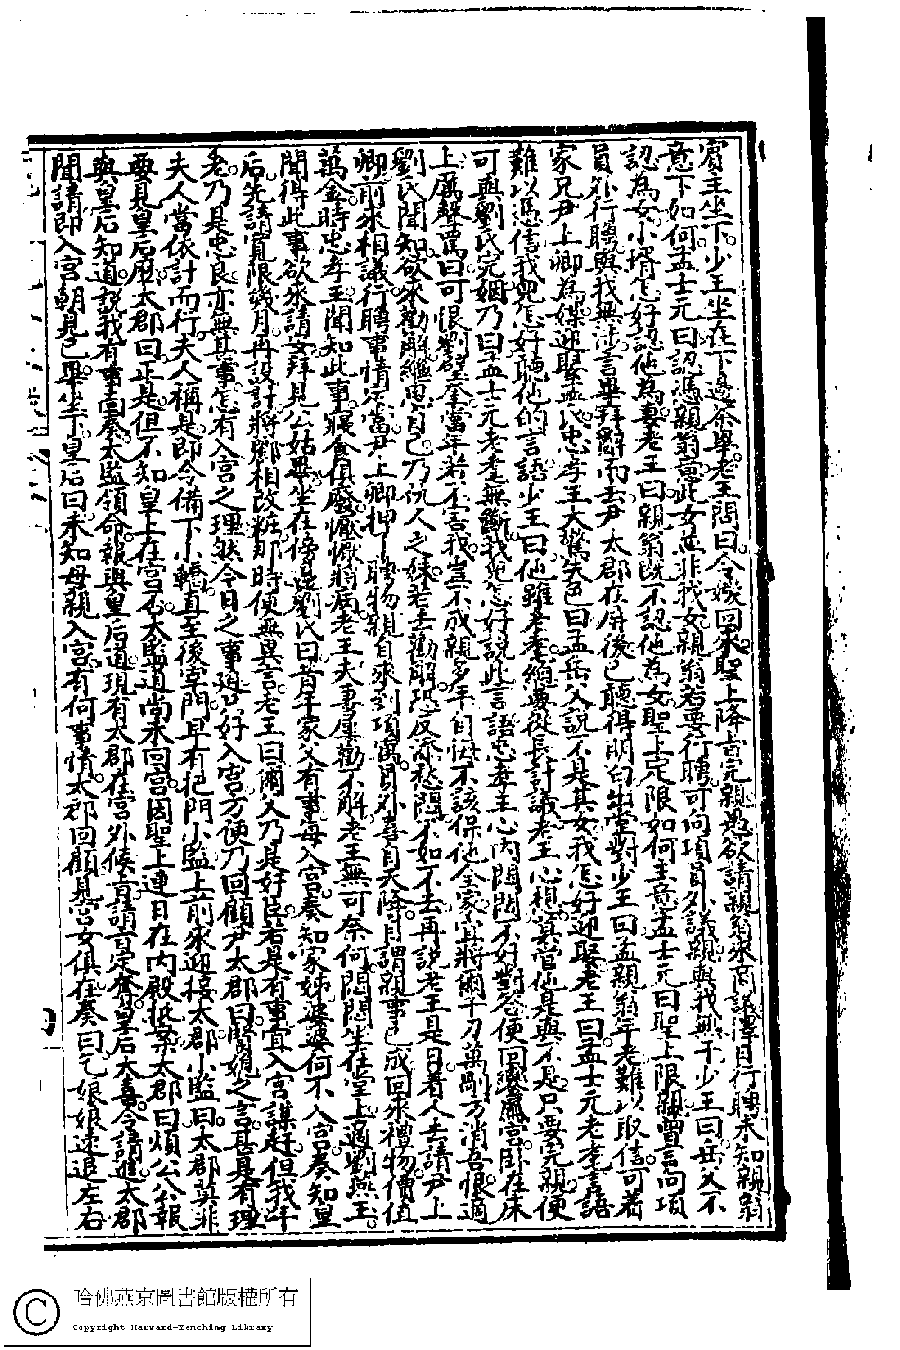 賓主坐下少王坐在下邊茶畢老王問曰今嫂回來聖上降旨完親愚欲請親翁來商議擇日行聘未知親翁
意下如何孟士元曰認憑親翁意此女甚非我女親翁若要行聘可向項員外議親與我無干少王曰岳父不
認為女小壻怎好認他為妻老王曰親翁既不認他為女聖上定限如何主意孟士元曰聖上限期曾言向項
員外行聘與我無涉言畢拜辭而去尹太郡在屏後已聽得明白出堂對少王曰孟親翁年老難以取信可着
家兄尹上卿為媒迎娶孟氏忠孝王大驚失色曰孟岳父說不是其女我怎好迎娶老王曰孟士元老孝言語
難以憑信我兒怎好聽他的言語少王曰他雖老孝總要從長計議老王心想算管他是與不是只要完親便
可與劉氏完姻乃曰孟士元老孝無斷我兒怎好說此言語忠孝王心內悶悶不好對答便回靈鳳宮卧在床
上厲聲罵曰可恨劉奎璧當年若不害我豈不成親多年自悔不該保他全家宜將爾千刀萬剮方消吾恨適
劉氏聞知欲來勸解繼思自己乃仇人之妹若去勸解恐反添愁悶不如不去再說老王是日着人去請尹上
卿前來相議行聘事情定當尹上卿押聘物親自來到項寓員外喜自天降自謂親事已成回來禮物價值
萬金時忠孝王聞知此事寢食俱廢懨懨病老王夫妻屢勸不解老王無可奈何悶悶坐在堂上適劉燕玉
聞得此事欲來請安拜見公姑畢坐在傍邊劉氏曰昔年家父有事母入宮奏知家姊婆婆何不入宮奏知皇
后先請寬限幾月再設計將鄭相改粧那時便無異言老王曰爾父乃是奸臣若是有事宜入宮謀赶但我年
老乃是忠良亦無其事怎有入宮之理然今日之事迫只好入宮方便乃回顧尹太郡曰賢媳之言甚具有理
夫人當依計而行夫人稱是即令備下小轎直至後宰門早有把門小監上前來迎接太郡小監曰太郡莫非
要見皇后麼太郡曰正是但不知皇上在宮否太監道尚未回宮因聖上連日在內殿批案太郡曰煩公公報
與皇后知道說我有事面奏太監領命報與皇后道現有太郡在宮外候旨請旨定奪皇后大喜令請進太郡
聞請即入宮朝見已畢坐下皇后曰未知母親入宮有何事情太郡回顧見宮女俱在奏曰乞娘娘速退左右
哈佛燕京圖書館版權所有
Copyright Harvard-Yenching Library